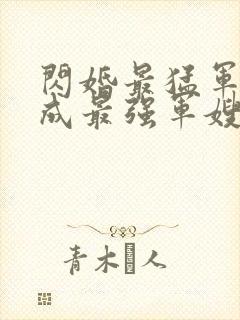 閃婚最猛軍
成最强軍嫂
青木 人